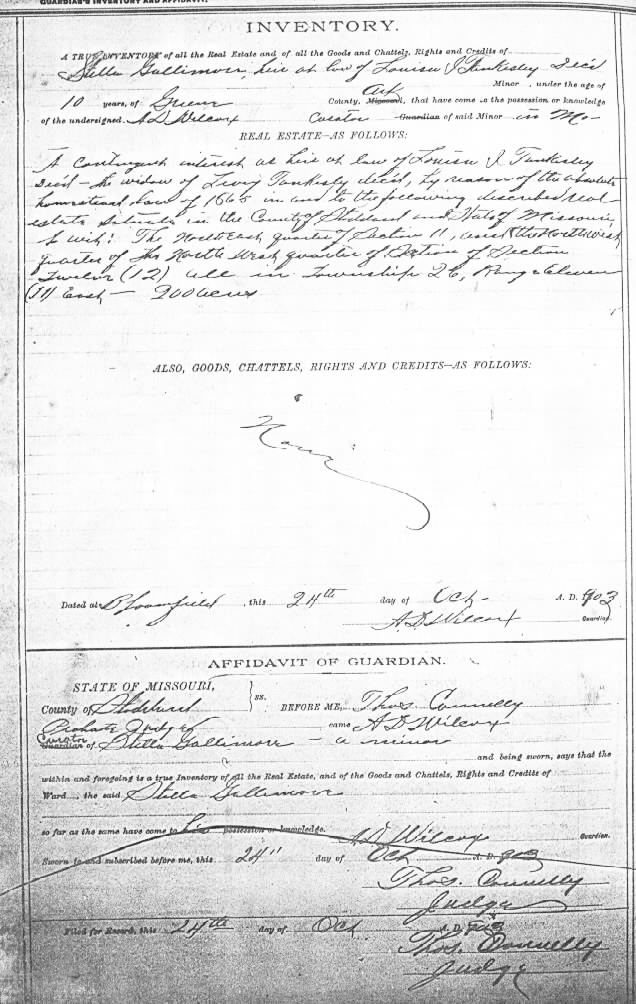 GUARDIAN'S INVENTORY AND AFFIDAVIT.
INVENTORY.
A TRUE INVENTORY of all the Real Estate and of all the Goods and Chattels, Rights and Credits of
Stella Gallimore, heir at law of Louisa J Tankesly Dec'd
Minor, under the age of
10 years, of Green Ark County, Missouri, that have come to the possession or knowledge
of the undersigned. A D Wilcox Curator Guardian of said Minor in Mo-
REAL ESTATE—AS FOLLOWS:
A contingent interest as heir at law of Louisa J. Tankesly
Dec'd - the widow of Levi Tankesly dec'd, by reason of the absolute
homestead law of 1865 in and to the following described real
estate situate in the County of Stoddard and State of Missouri
to wit: The North East quarter of Section 11, and the North West
quarter of the North West quarter of Section of Section
Twelve (12) all in Township 26, Range Eleven
(11) East — 200 acres
ALSO, GOODS, CHATTELS, RIGHTS AND CREDITS—AS FOLLOWS:
None
Dated at Bloomfield, this 24th day of Oct- A. D. 1903
A D Wilcox Guardian.
AFFIDAVIT OF GUARDIAN.
STATE OF MISSOURI,
ss.
County of Stoddard BEFORE ME, Thos Connelly
Probate Judge came A D Wilcox
Curator Guardian of Stella Gallimore - a minor
and being sworn, says that the
within and foregoing is a true Inventory of all the Real Estate, and of the Goods and Chattels, Rights and Credits of
Ward, the said Stella Gallimore
so far as the same have come to his possession or knowledge.
A D Wilcox Guardian.
Sworn to and subscribed before me, this 24" day of Oct A. D. 903
Thos. Connelly
Judge
Filed for Record, this 24th day of Oct A. D. 903
Thos. Connelly
Judge